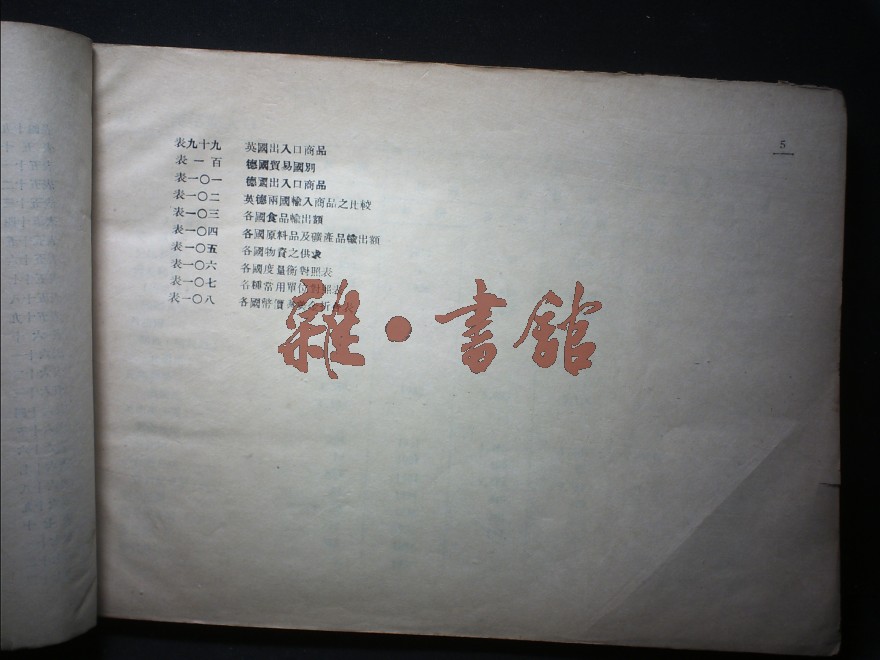 5
表九十九 英國出入口商品
表一百 德國貿易國別
表一〇一 德國出入口商品
表一〇二 英德兩國輸入商品之比較
表一〇三 各國食品輸出額
表一〇四 各國原料品及礦產品輸出額
表一〇五 各國物資之供求
表一〇六 各國度量衡對照表
表一〇七 各種常用單位對照表
表一〇八 各國幣價
雜·書館